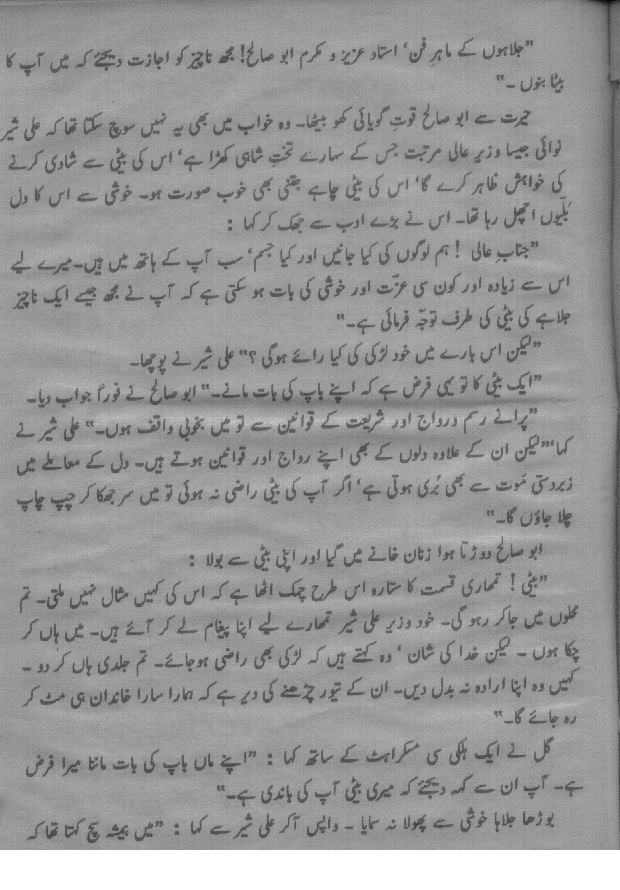 ”جلاہوں کے ماہرِ فن‘ استاد عزیز و مکرم ابو صالح! مجھ ناچیز کو اجازت دیجئے کہ میں آپ کا
بیٹا بنوں ۔“
حیرت سے ابو صالح قوتِ گویائی کھو بیٹھا۔ وہ خواب میں بھی یہ نہیں سوچ سکتا تھا کہ علی شیر
نوائی جیسا وزیرِ عالی مرتبت جس کے سہارے تختِ شاہی کھڑا ہے‘ اس کی بیٹی سے شادی کرنے
کی خواہش ظاہر کرے گا‘ اس کی بیٹی چاہے جتنی بھی خوب صورت ہو۔ خوشی سے اس کا دل
بلّیوں اچھل رہا تھا۔ اس نے بڑے ادب سے جھک کر کہا :
”جنابِ عالی ! ہم لوگوں کی کیا جانیں اور کیا جسم‘ سب آپ کے ہاتھ میں ہیں۔ میرے لیے
اس سے زیادہ اور کون سی عزّت اور خوشی کی بات ہو سکتی ہے کہ آپ نے مجھ جیسے ایک ناچیز
جلاہے کی بیٹی کی طرف توجّہ فرمائی ہے۔“
”لیکن اس بارے میں خود لڑکی کی کیا رائے ہوگی ؟“ علی شیر نے پوچھا۔
”ایک بیٹی کا تو یہی فرض ہے کہ اپنے باپ کی بات مانے۔“ ابو صالح نے فوراً جواب دیا۔
”پرانے رسم و رواج اور شریعت کے قوانین سے تو میں بخوبی واقف ہوں۔“ علی شیر نے
کہا‘ ”لیکن ان کے علاوہ دلوں کے بھی اپنے رواج اور قوانین ہوتے ہیں۔ دل کے معاملے میں
زبردستی موت سے بھی بُری ہوتی ہے‘ اگر آپ کی بیٹی راضی نہ ہوئی تو میں سر جھکا کر چپ چاپ
چلا جاؤں گا۔“
ابو صالح دوڑتا ہوا زنان خانے میں گیا اور اپنی بیٹی سے بولا :
”بیٹی ! تمہاری قسمت کا ستارہ اس طرح چمک اٹھا ہے کہ اس کی کہیں مثال نہیں ملتی۔ تم
محلوں میں جاکر رہو گی۔ خود وزیر علی شیر تمہارے لیے اپنا پیغام لے کر آئے ہیں۔ میں ہاں کر
چکا ہوں ۔ لیکن خدا کی شان ‘ وہ کہتے ہیں کہ لڑکی بھی راضی ہوجائے۔ تم جلدی ہاں کر دو ۔
کہیں وہ اپنا ارادہ نہ بدل دیں۔ ان کے تیور چڑھنے کی دیر ہے کہ ہمارا سارا خاندان ہی مٹ کر
رہ جائے گا۔“
گل نے ایک ہلکی سی مسکراہٹ کے ساتھ کہا : ”اپنے ماں باپ کی بات ماننا میرا فرض
ہے۔ آپ ان سے کہہ دیجئے کہ میری بیٹی آپ کی باندی ہے۔“
بوڑھا جلاہا خوشی سے پھولا نہ سمایا ۔ واپس آکر علی شیر سے کہا : ”میں ہمیشہ سچ کہتا تھا کہ